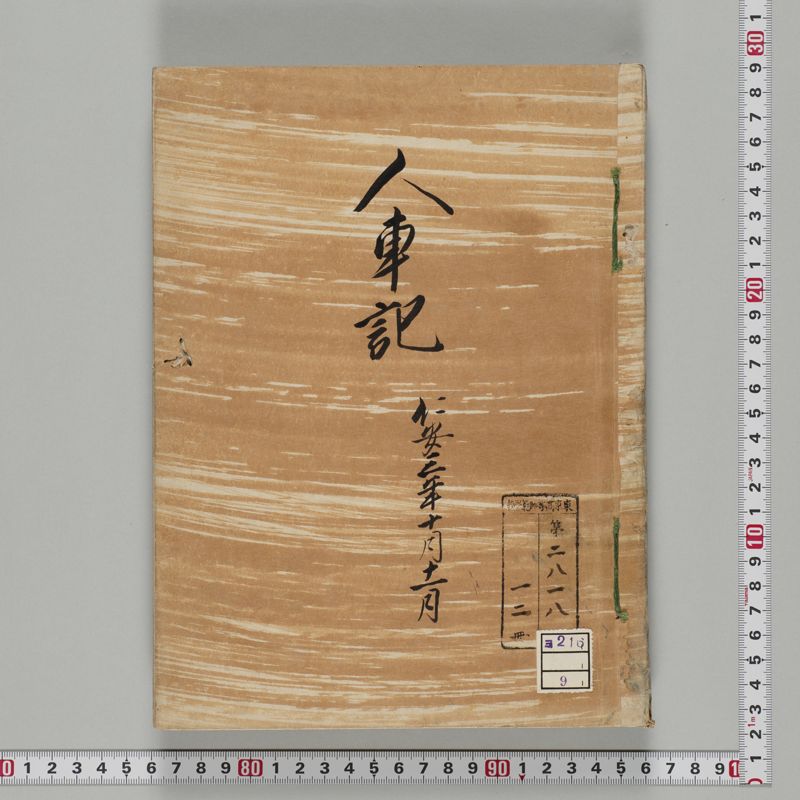 人車記
仁安三年十月十一月
第二八一八
一二冊
ヨ216
9
30
1 2 3 4 5 6 7 8 9
20
1 2 3 4 5 6 7 8 9
10
1 2 3 4 5 6 7 8 9
1m
0 1 2 3 4 5 6 7 8 9 80 1 2 3 4 5 6 7 8 9 90 1 2 3 4 5 6 7 8 9